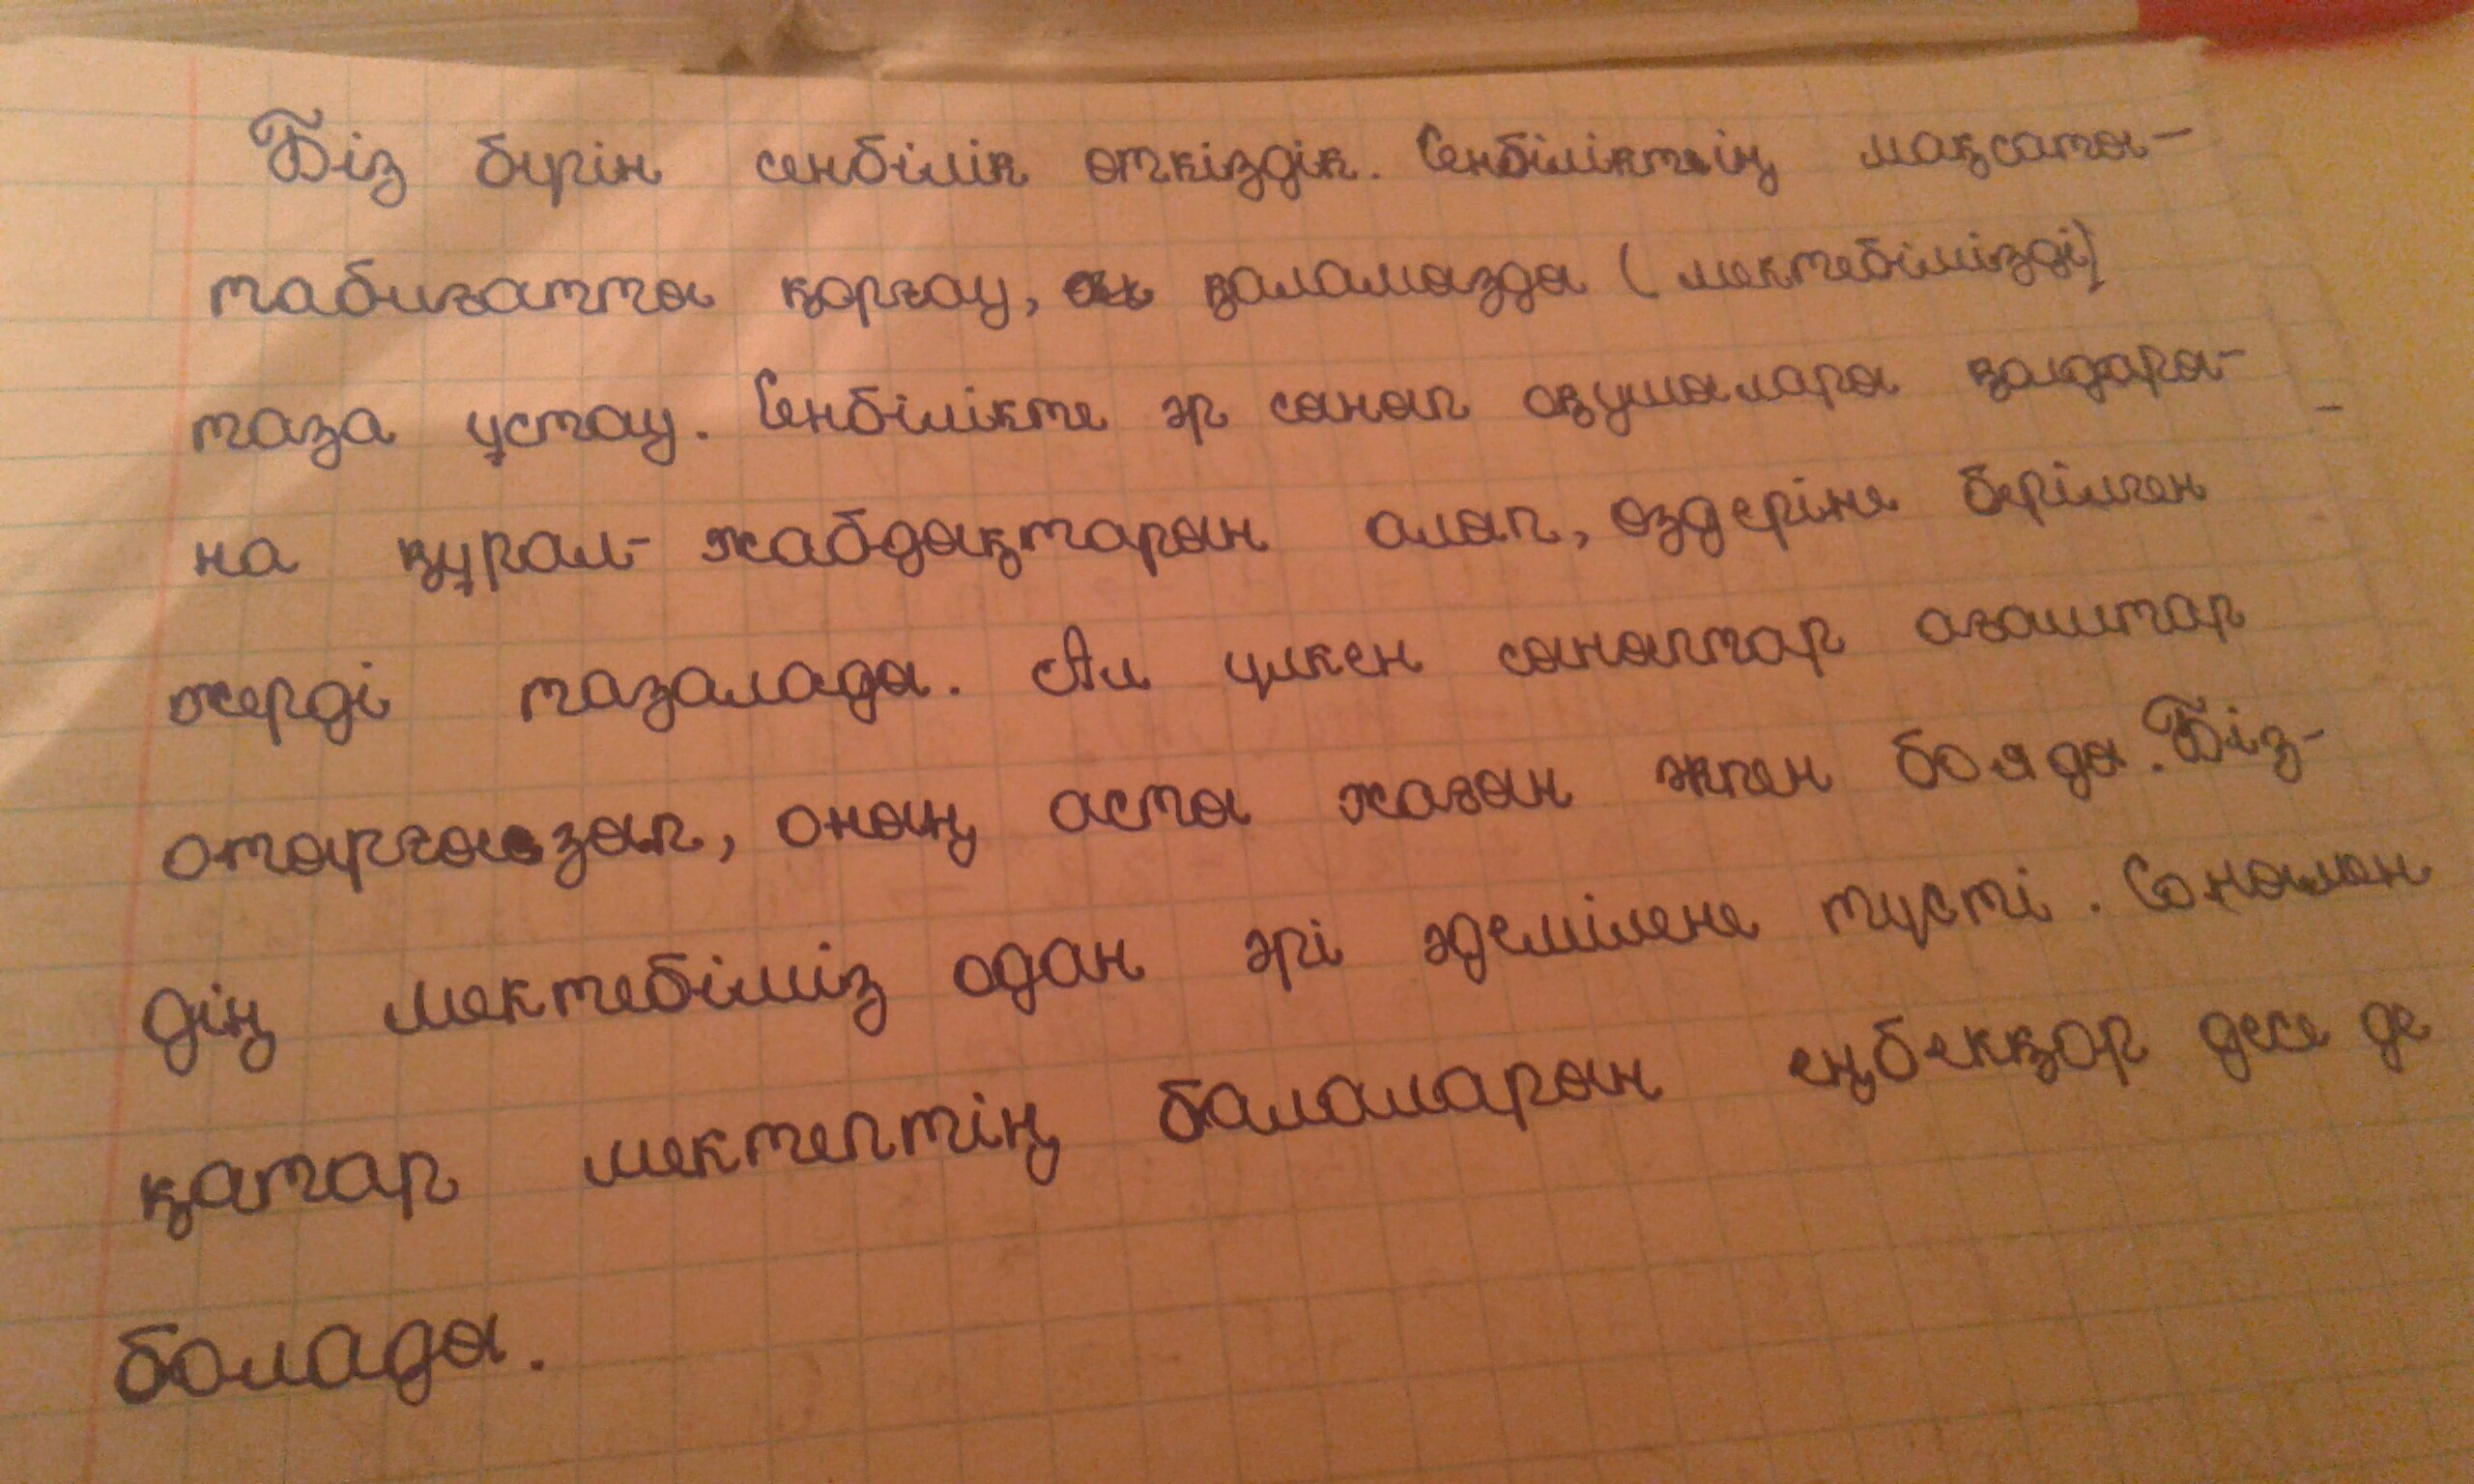 Біз бүгін сенбілік өткіздік. Сенбіліктің мақсаты-
табиғатты қорғау, қаламызды (мектебімізді)
таза ұстау. Сенбілікте әр сынып оқушылары қолдары-
на құрал-жабдықтарын алып, өздеріне берілген
жерді тазалады. Ал үлкен сыныптар ағаштар
отырғызып, оның асты жағын әкпен бояды. Біз-
дің мектебіміз одан әрі әдемілене түсті. Сонымен
қатар мектептің балаларын еңбекқор десе де
болады.